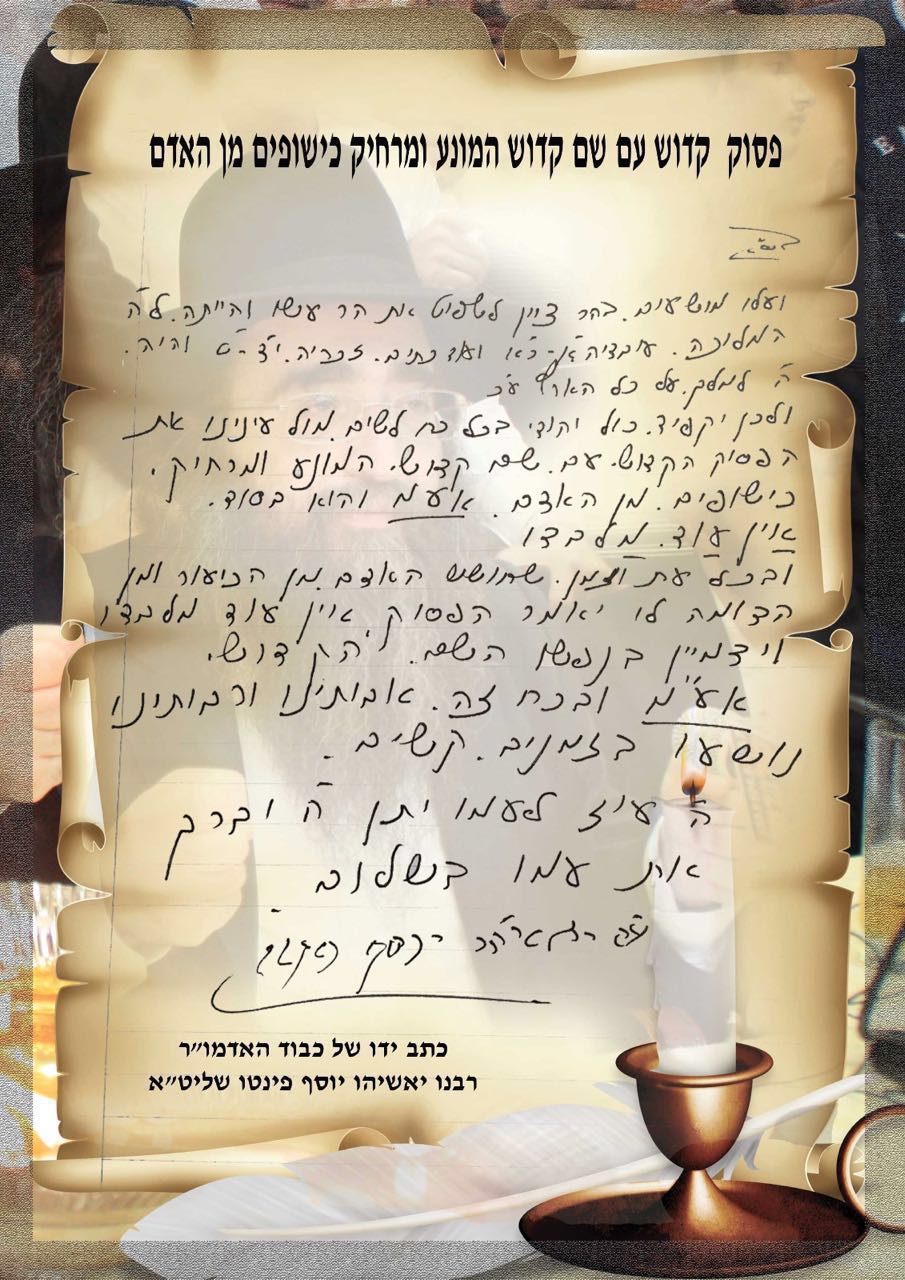 פסוק קדוש עם שם קדוש המונע ומרחיק כישופים מן האדם
בס"ד
ועלו מושעים. בהר ציין לשפוט את הר עשו והייתה. לה'
המלוכה. עובדיה א'- כ"א ועוד כתוב. זכריה. י"ד - ט והיה.
ה' למלך. על כל הארץ
ולכן יקפיד. כול יהודי בכל כח לשים. מול עינינו את
הפסוק הקדוש. עם. שם קדוש. המונע ומרחיק.
כישופים. מן האדם. אע"מ והוא בסוד.
אין עוד. מלבדו
ובכל עת וזמן. שחושש האדם. מן הכיעור ומן
הדומה לו יאמר הפסוק אין עוד מלבדו
וידמיין בנפשו השם. הקדוש.
אע"מ ובכח זה. אבותינו ורבותינו
נושעו בזמנים. קשים.
ה' עוז לעמו יתן ה' יברך
את עמו בשלום
יוסף
כתב ידו של כבוד האדמו״ר
רבנו יאשיהו יוסף פינטו שליט״א